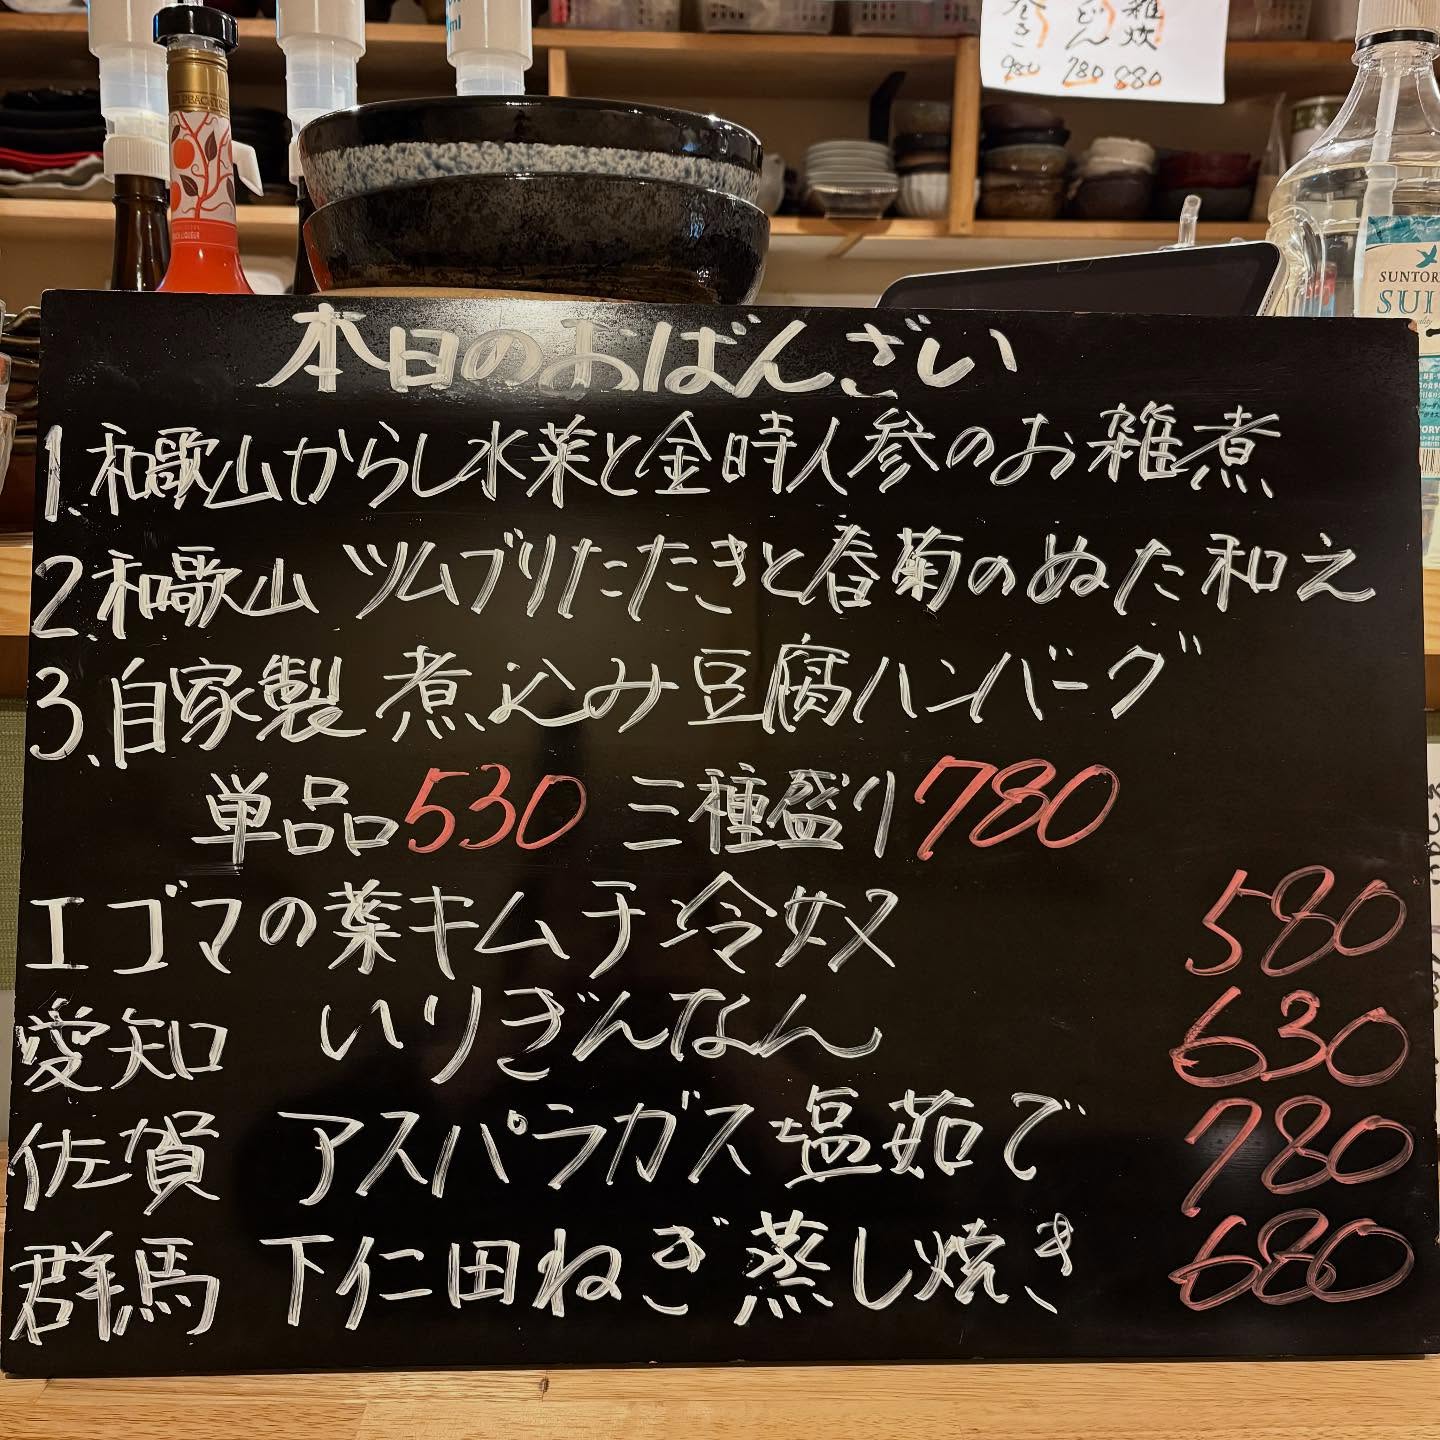 雑炊 880
どん 780
980
ml
SUNTOR
SUI
本日のおばんざい
1.和歌山からし水菜と金時人参のお雑煮
2.和歌山 ツムブリたたきと春菊のぬた和え
3.自家製 煮込み豆腐ハンバーグ
単品530 三種盛り780
エゴマの葉キムチ冷奴 580
愛知 いりぎんなん 630
佐賀 アスパラガス塩茹で 780
群馬 下仁田ねぎ蒸し焼き 680